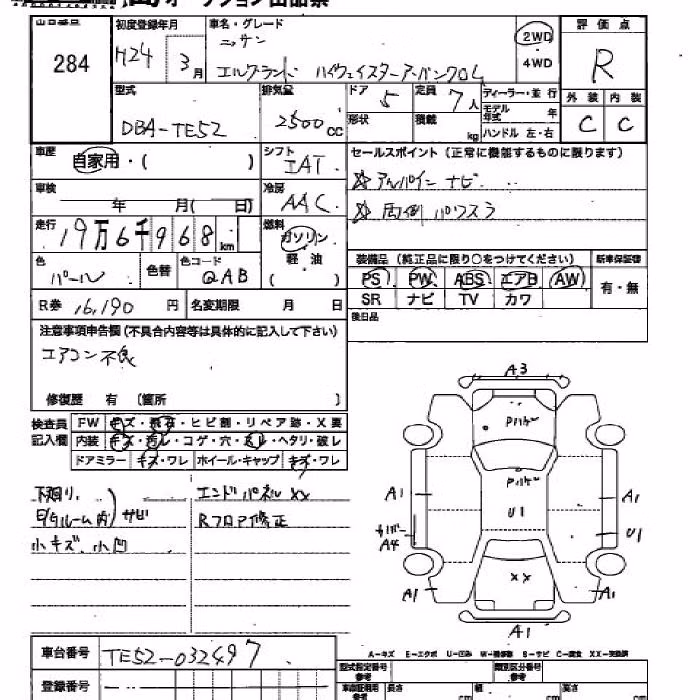 オークション出品票
出品番号 284
初度登録年月 H24 3月
車名・グレード
ニッサン
エルグランド ハイウェイスターアーバンクロム
2WD
・
4WD
評価点 R
外装 内装
C C
型式 DBA-TE52
排気量 2500cc
ドア 5
定員 7人
形状
積載 kg
ディーラー・並行
モデル年式 年
ハンドル 左・右
車歴 自家用・( )
シフト IAT
セールスポイント (正常に機能するものに限ります)
☆ アルパイン ナビ
☆ 両側 パワスラ
車検 年 月( 日)
冷房 AAC
走行 19万6千968km
燃料 ガソリン
軽・油
( )
色 パール
色替
色コード QAB
装備品 (純正品に限り○をつけてください)
新車保証書
PS PW ABS エアB AW
有・無
SR ナビ TV カワ
R券 16,190 円
名変期限 月 日
後日品
注意事項申告欄 (不具合内容等は具体的に記入して下さい)
エアコン不良
修復歴 有 〔箇所 〕
検査員
記入欄
FW キズ・飛石・ヒビ割・リペア跡・X要
内装 キズ・汚レ・コゲ・穴・スレ・ヘタリ・破レ
ドアミラー キズ・ワレ ホイール・キャップ キズ・ワレ
下廻り、
E/gルーム内 サビ
小キズ、小凹
エンドパネルXX
Rフロア修正
A3
Pハゲ
Pハゲ
A1
U1
A1
カバー
A4
U1
XX
A1
A1
A1
A-キズ E-エクボ U-凹み W-補修跡 S-サビ C-腐食 XX-交換済
車台番号 TE52-032497
登録番号
型式指定番号
参考
類別区分番号
参考
車庫証明用
参考
長さ cm
幅 cm
高さ cm